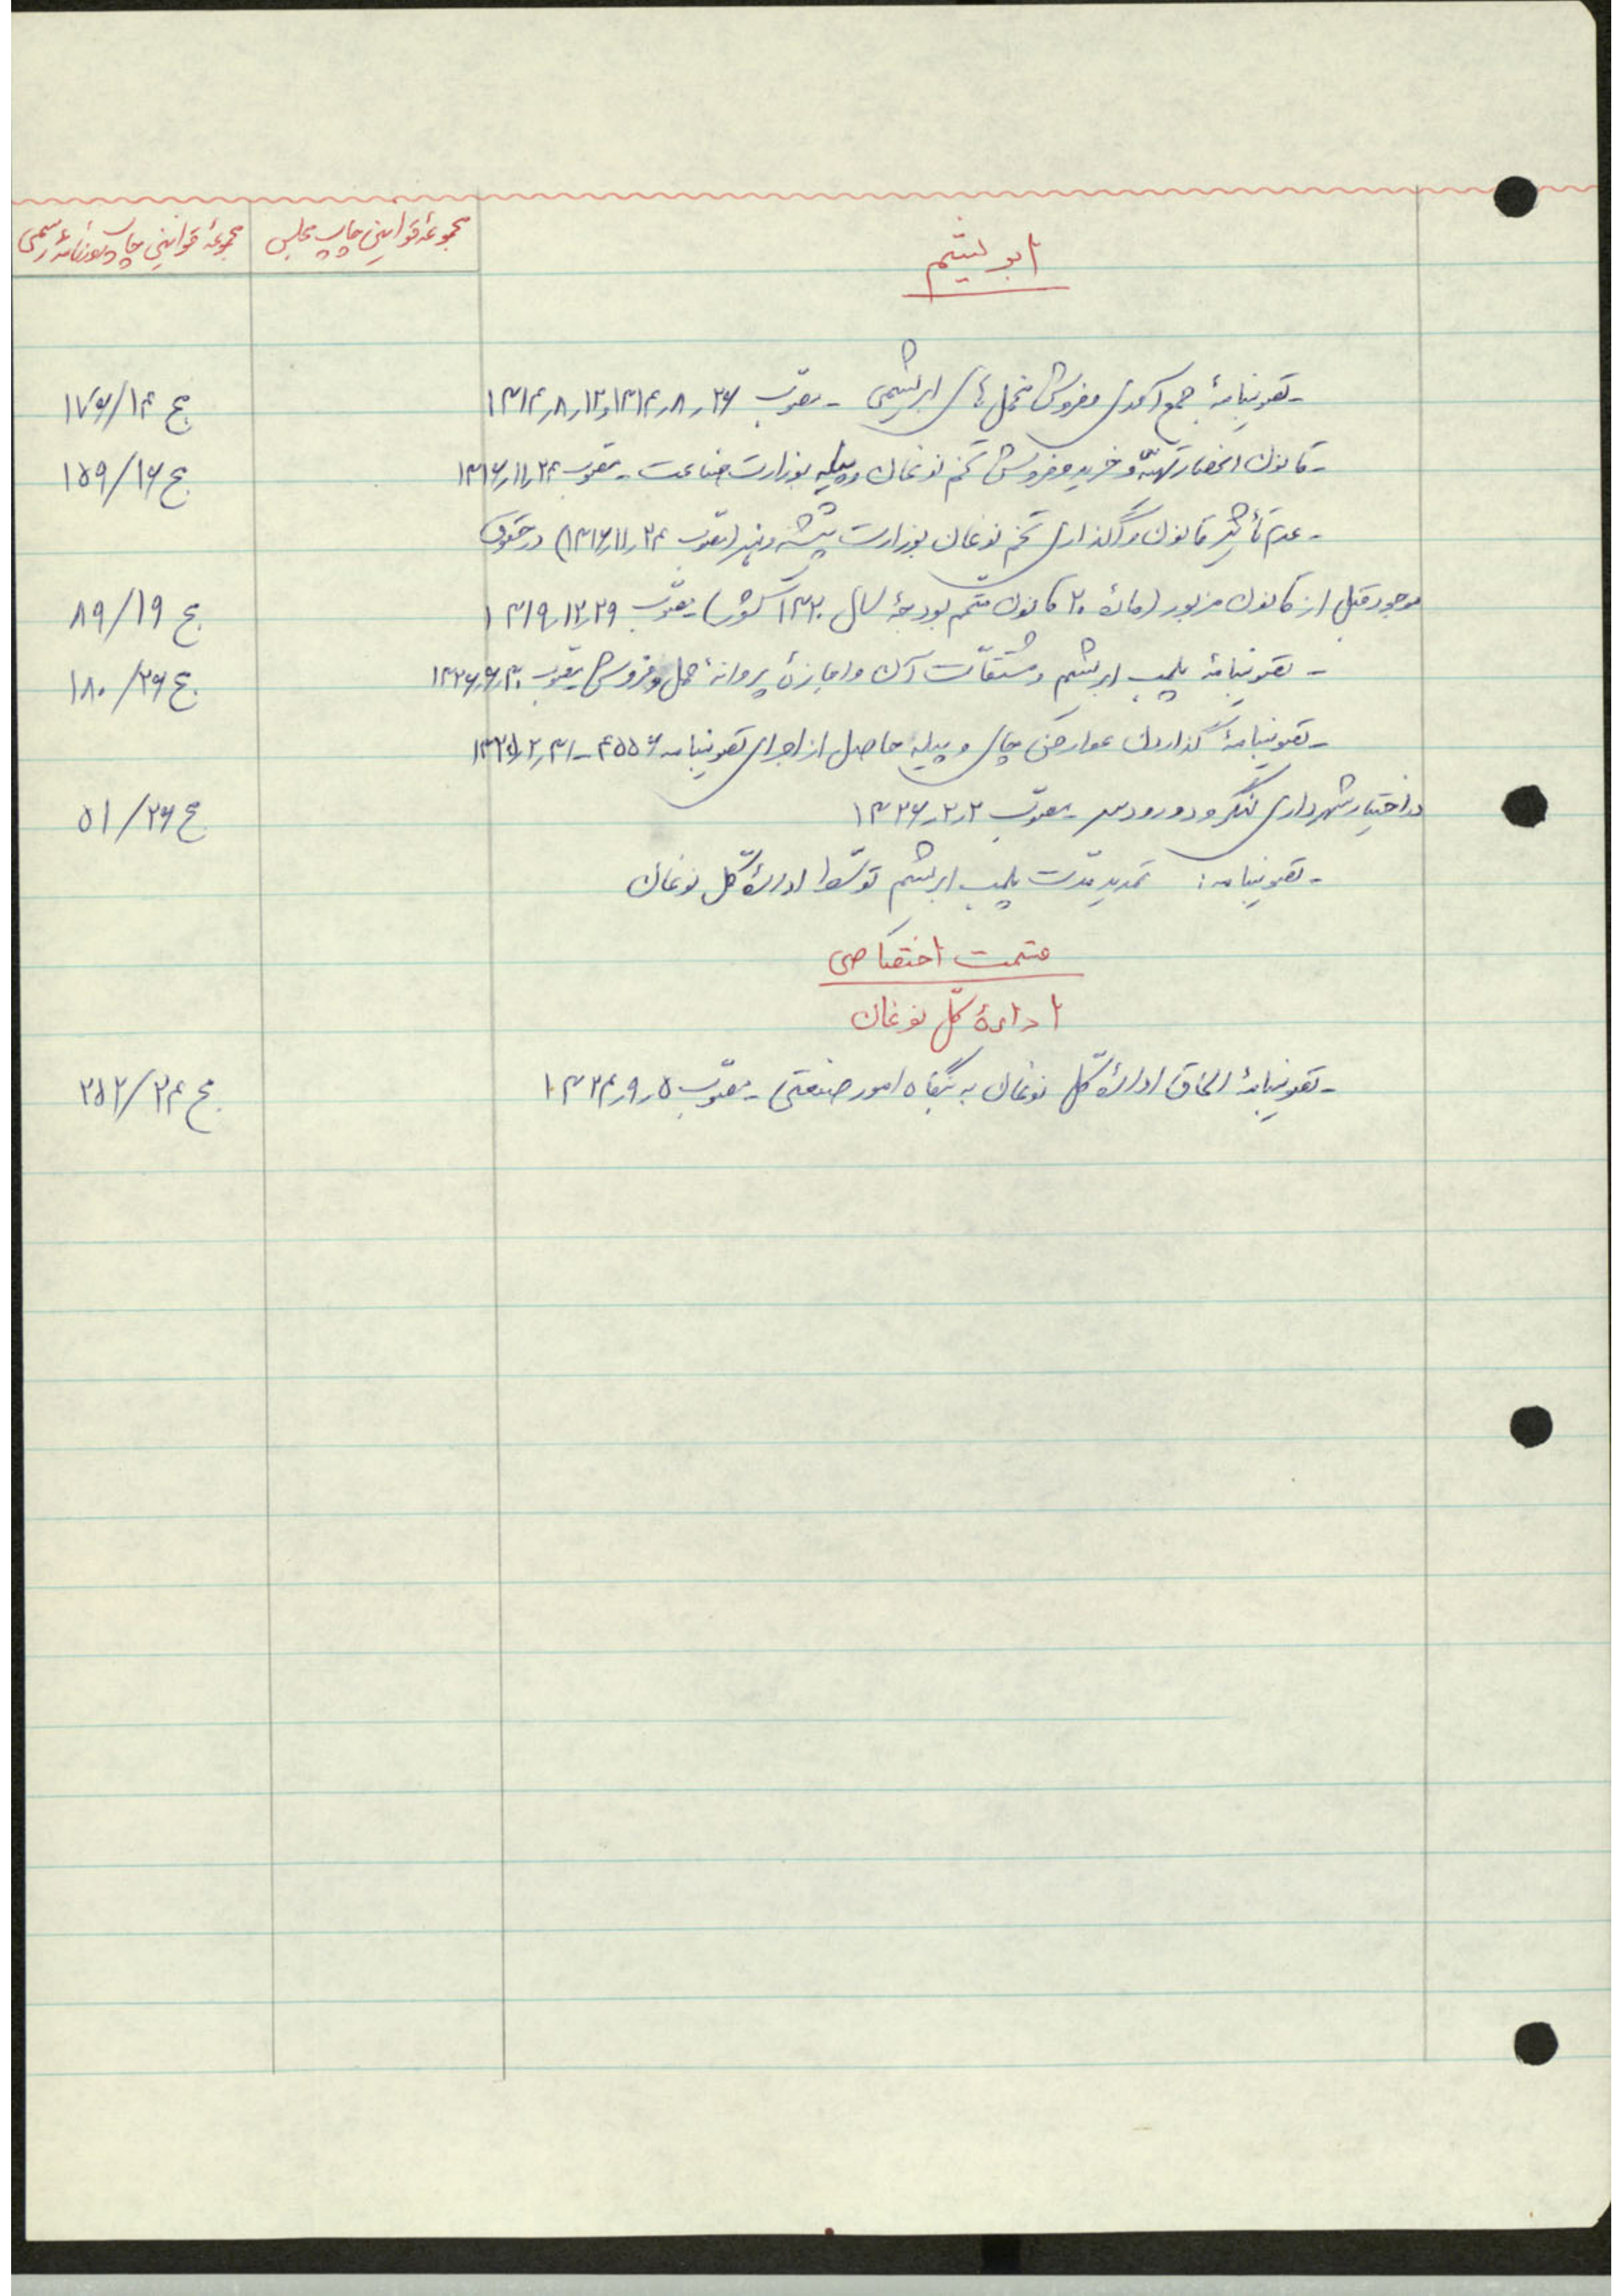 ابریشم
مجموعهٔ قوانین چاپ مجلس
مجموعهٔ قوانین چاپ روزنامهٔ رسمی
- تصویبنامهٔ جمع آوری و فروش مخمل های ابریشمی - مصوّب ۲۶ر۸ر۱۳۱۴و۱۲ر۸ر۱۳۱۴ ج ۱۷۶/۱۴
- قانون انحصار تهیّه و خرید و فروش تخم نوغان و پیله بوزارت صناعت - مصوّب ۲۴ر۱۱ر۱۳۱۶ ج ۱۵۹/۱۶
- عدم تأثیر قانون واگذاری تخم نوغان بوزارت پیشه و هنر (مصوّب ۲۴ر۱۱ر۱۳۱۶) در حقوق
موجود قبل از قانون مزبور (مادهٔ ۲۰ قانون متمّم بودجهٔ سال ۱۳۲۰ کشور) مصوّب ۲۹ر۱۲ر۱۳۱۹ ج ۸۹/۱۹
- تصویبنامهٔ پلمب ابریشم و مشتقّات آن و اجازهٔ پروانهٔ حمل و فروش مصوّب ۳۰ر۶ر۱۳۲۶ ج ۱۸۰/۲۶
- تصویبنامهٔ گذاردن عوارض چای و پیله حاصل از اجرای تصویبنامه ۴۵۵۶ - ۳۱ر۲ر۱۳۲۵
در اختیار شهرداری لنگرود و رودسر - مصوّب ۲ر۲ر۱۳۲۶ ج ۵۱/۲۶
- تصویبنامه: تمدید مدّت پلمب ابریشم توسّط ادارهٔ کلّ نوغان
قسمت اختصاصی
ادارهٔ کلّ نوغان
- تصویبنامهٔ الحاق ادارهٔ کلّ نوغان به بنگاه امور صنعتی - مصوّب ۵ر۹ر۱۳۲۴ ج ۲۵۲/۲۴